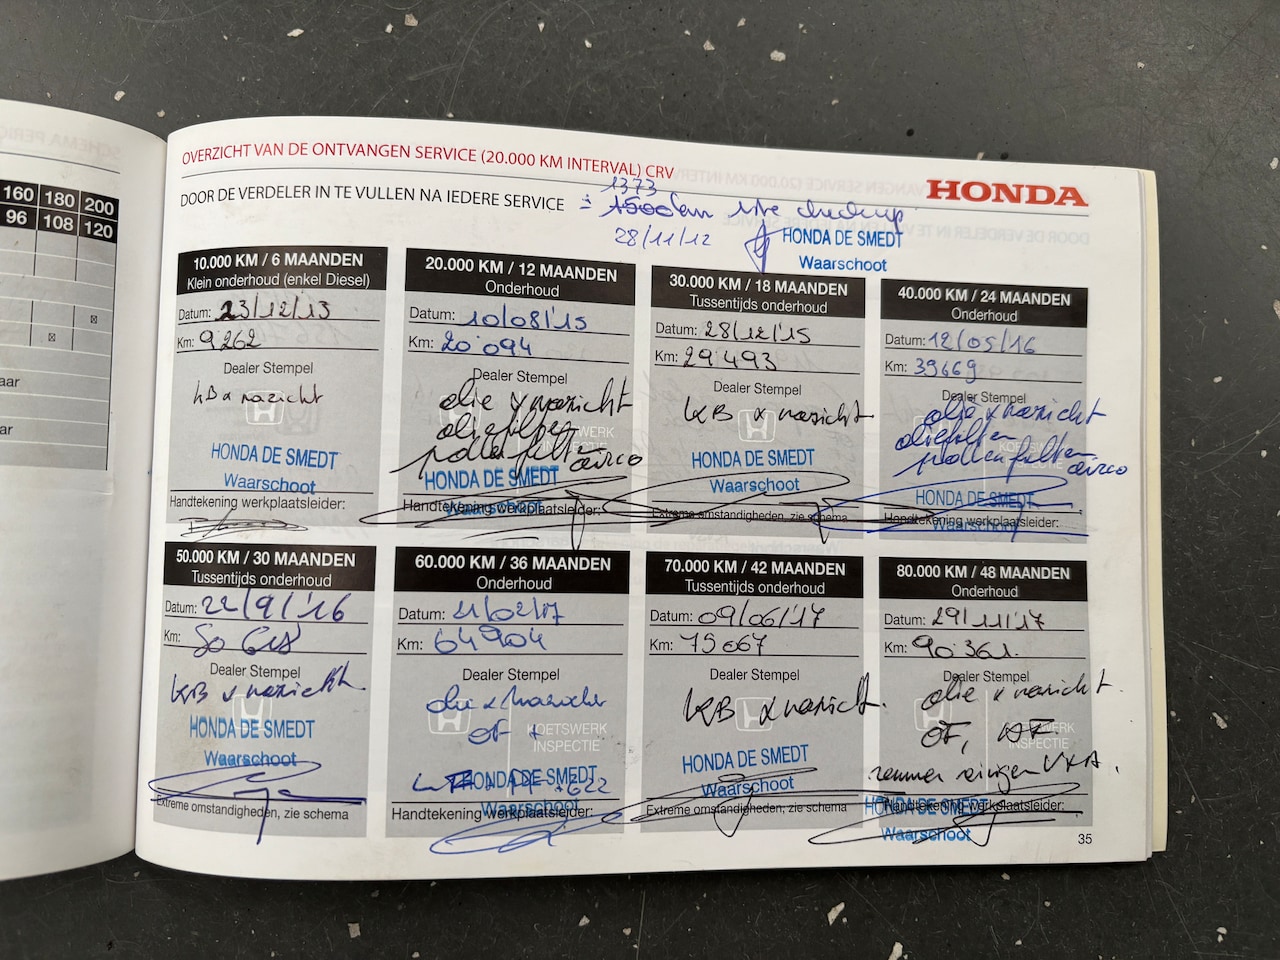 160 180 200
96 108 120
aar
ar
OVERZICHT VAN DE ONTVANGEN SERVICE (20.000 KM INTERVAL) CRV
HONDA
1373
DOOR DE VERDELER IN TE VULLEN NA IEDERE SERVICE ± 1500km
28/11/12
HONDA DE SMEDT
Waarschoot
10.000 KM / 6 MAANDEN
Klein onderhoud (enkel Diesel)
Datum: 23/12/13
Km: 9262
Dealer Stempel
KB x nazicht
HONDA DE SMEDT
Waarschoot
Handtekening werkplaatsleider:
20.000 KM / 12 MAANDEN
Onderhoud
Datum: 10/08/'15
Km: 20 094
Dealer Stempel
olie x nazicht
oliefilter
KOETSWERK
INSPECTIE
pollenfilter airco
HONDA DE SMEDT
Waarschoot
Handtekening werkplaatsleider:
30.000 KM / 18 MAANDEN
Tussentijds onderhoud
Datum: 28/12/15
Km: 29 493
Dealer Stempel
KB x nazicht
HONDA DE SMEDT
Waarschoot
Extreme omstandigheden, zie schema
40.000 KM / 24 MAANDEN
Onderhoud
Datum: 12/05/16
Km: 39669
Dealer Stempel
olie x nazicht
oliefilter
KOETSWERK
INSPECTIE
pollenfilter airco
HONDA DE SMEDT
Waarschoot
Handtekening werkplaatsleider:
50.000 KM / 30 MAANDEN
Tussentijds onderhoud
Datum: 22/9/'16
Km: 50
Dealer Stempel
KB x nazicht
HONDA DE SMEDT
Waarschoot
Extreme omstandigheden, zie schema
60.000 KM / 36 MAANDEN
Onderhoud
Datum: 21/02/17
Km: 64904
Dealer Stempel
olie x nazicht
OF +
KOETSWERK
INSPECTIE
HONDA DE SMEDT
Waarschoot
Handtekening werkplaatsleider:
70.000 KM / 42 MAANDEN
Tussentijds onderhoud
Datum: 09/06/'17
Km: 75067
Dealer Stempel
KB x nazicht.
HONDA DE SMEDT
Waarschoot
Extreme omstandigheden, zie schema
80.000 KM / 48 MAANDEN
Onderhoud
Datum: 29/11/'17
Km: 90 361.
Dealer Stempel
olie x nazicht.
OF,
KOETSWERK
INSPECTIE
remmen reinigen V+A.
HONDA DE SMEDT
Waarschoot
Handtekening werkplaatsleider:
35